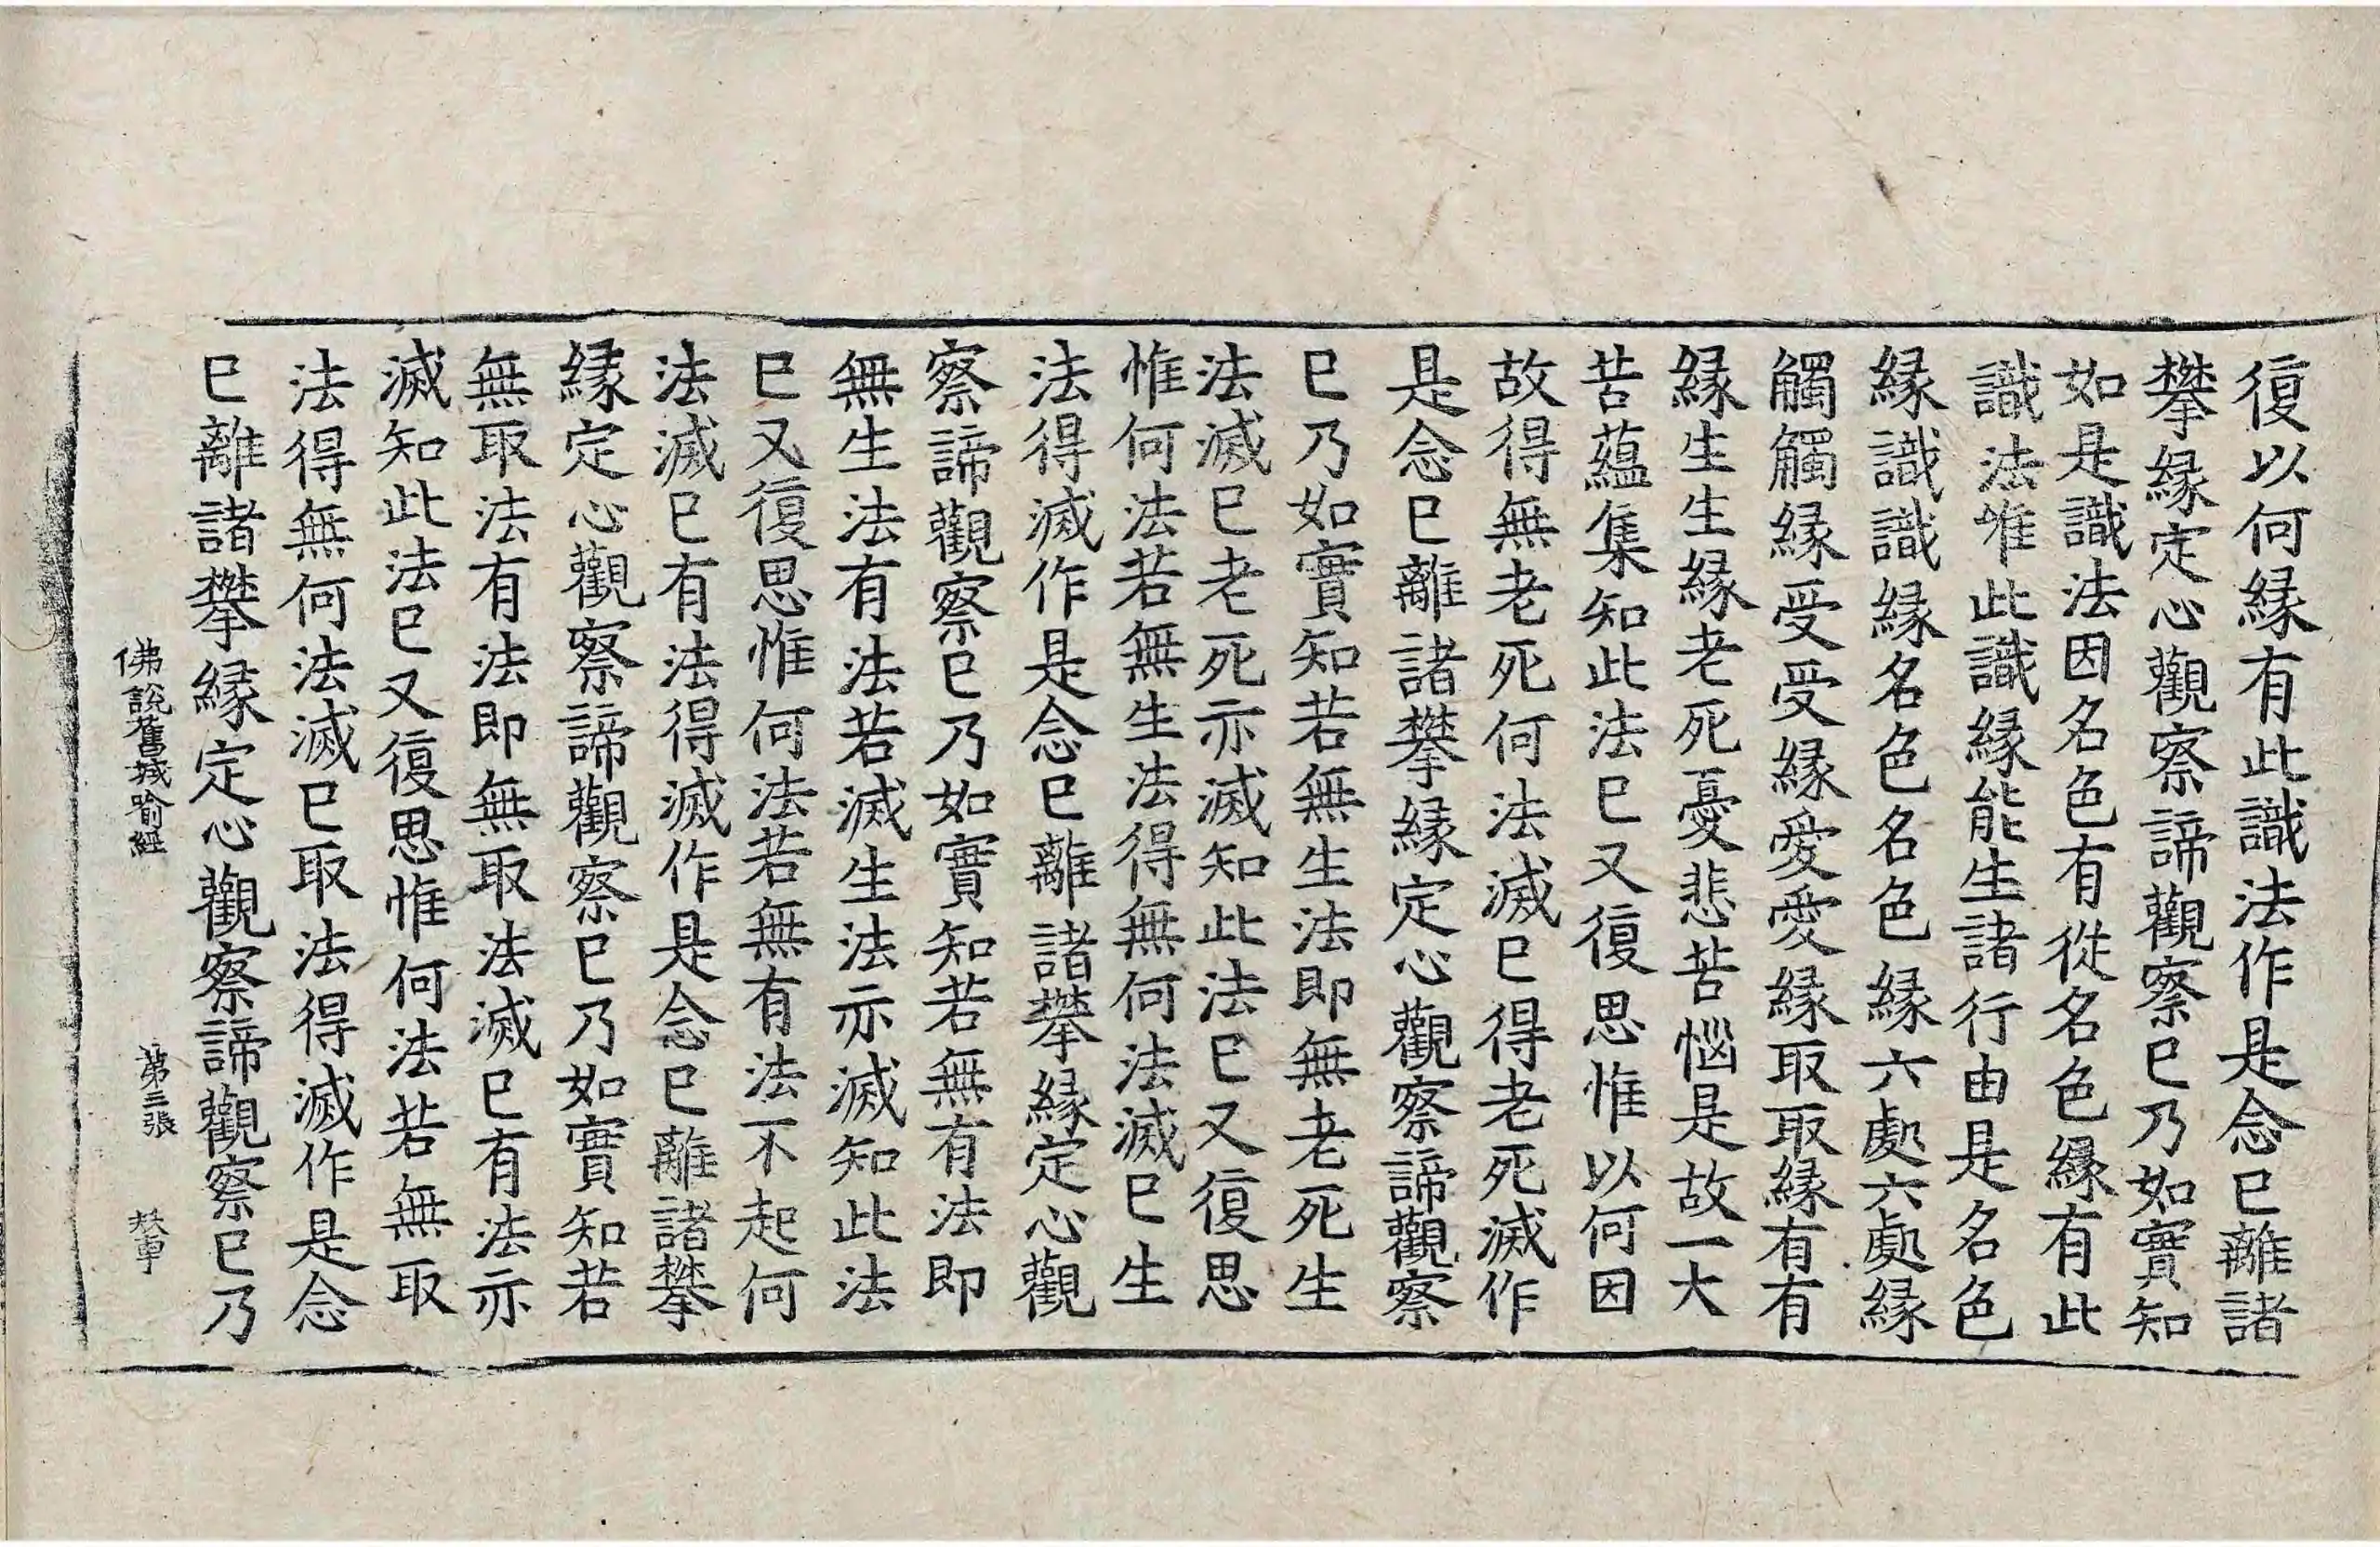 復以何縁有此識法作是念巳離諸
攀縁定心觀察諦觀察巳乃如實知
如是識法因名色有從名色縁有此
識法唯此識縁能生諸行由是名色
縁識識縁名色名色縁六處六處縁
觸觸縁受受縁愛愛縁取取縁有有
縁生生縁老死憂悲苦惱是故一大
苦蘊集知此法巳又復思惟以何因
故得無老死何法滅巳得老死滅作
是念巳離諸攀縁定心觀察諦觀察
巳乃如實知若無生法即無老死生
法滅巳老死亦滅知此法巳又復思
惟何法若無生法得無何法滅巳生
法得滅作是念巳離諸攀縁定心觀
察諦觀察巳乃如實知若無有法即
無生法有法若滅生法亦滅知此法
巳又復思惟何法若無有法不起何
法滅巳有法得滅作是念巳離諸攀
縁定心觀察諦觀察巳乃如實知若
無取法有法即無取法滅巳有法亦
滅知此法巳又復思惟何法若無取
法得無何法滅巳取法得滅作是念
巳離諸攀縁定心觀察諦觀察巳乃
佛說舊城喻經 第三張